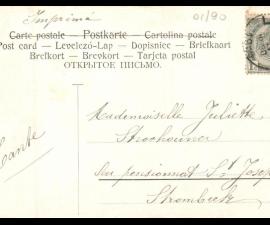 Imprimé
01/90
Carte postale — Postkarte — Cartolina postale
Post card — Levelező-Lap — Dopisnice — Briefkaart
Brefkort — Brevkort — Tarjeta postal
ОТКРЫТОЕ ПИСЬМО.
Mademoiselle Juliette
au pensionnat St Josep
Strombeek